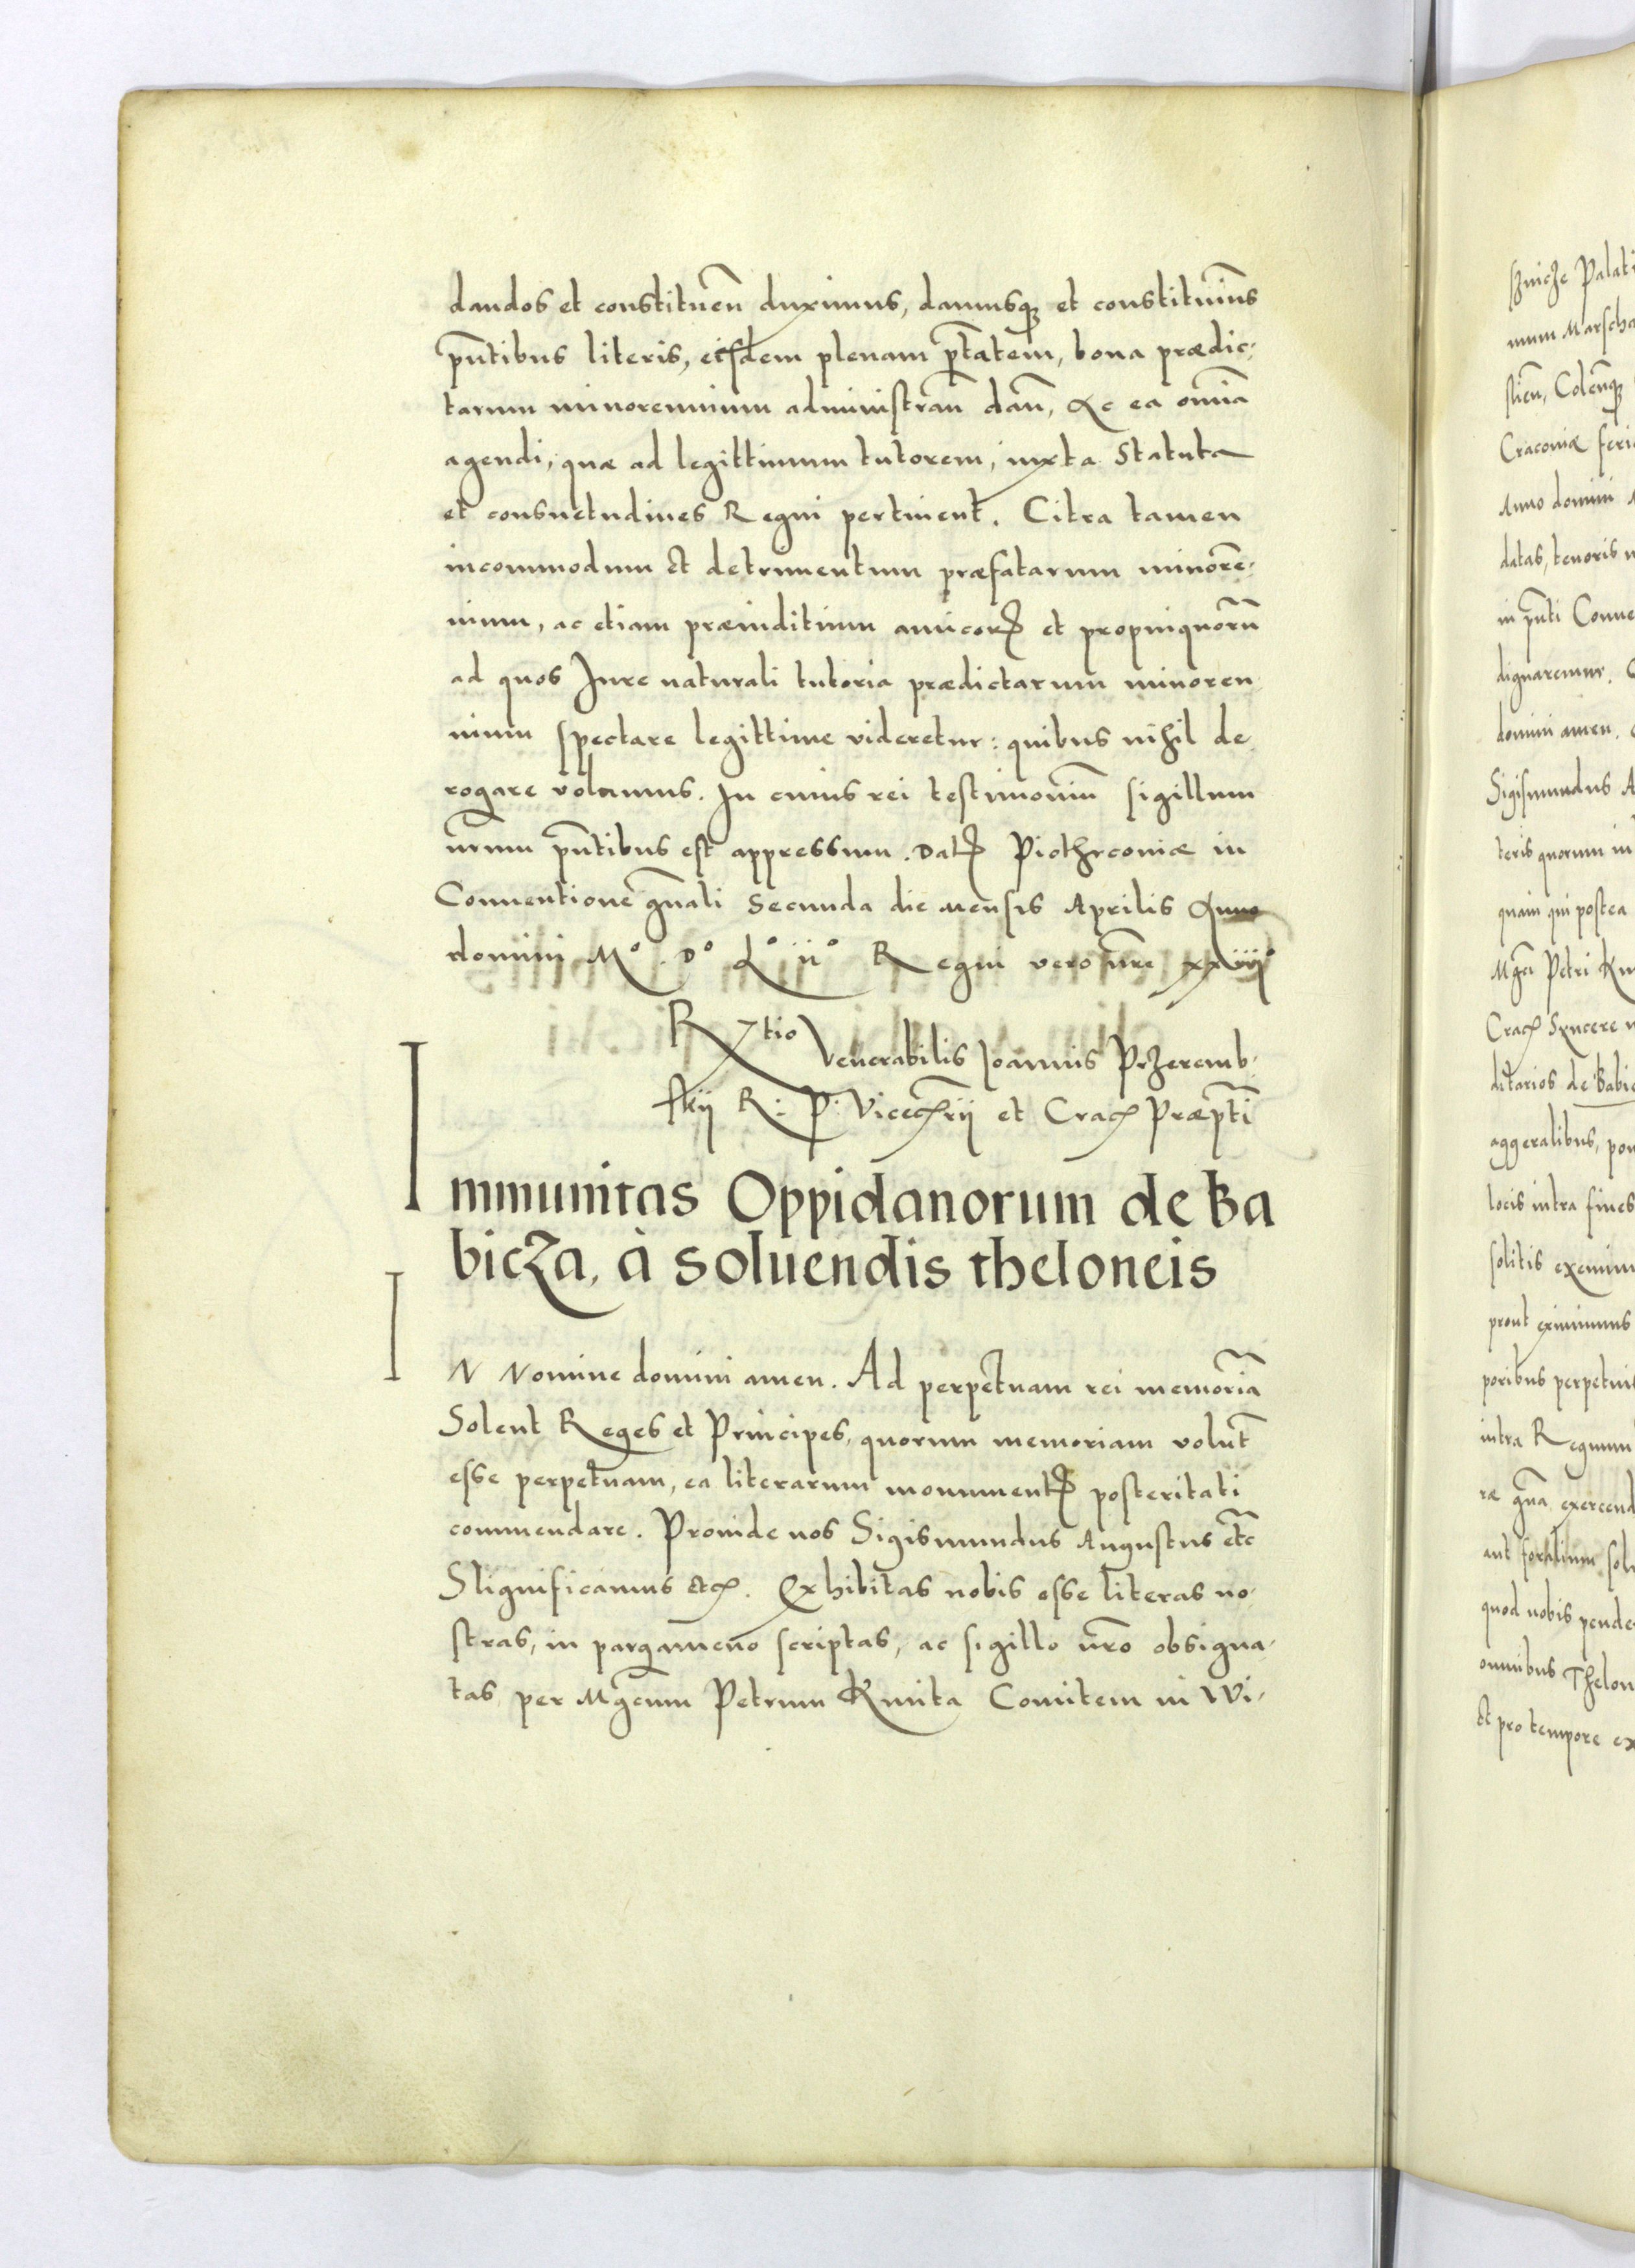 dandos et constituen̄ duximus, damusq₃ et constituim̄s
pn̄tibus literis, eisdem plenam pt̄atem, bona prædic-
tarum minorennium administran̄ dan̄, Ac ea omnīa
agendi, quæ ad legittimum tutorem, iuxta Statuta
et consuetudines Regni pertinent. Citra tamen
incommodum et detrimentum præfatarum minorē-
nium, ac etiam præiuditium amicorꝝ et propinquorū
ad quos Iure naturali tutoria prædictarum minoren
nium spectare legittime videretur: quibus nihil de
rogare volumus. In cuius rei testimoniū sigillum
nr̄um pn̄tibus est appressum. Datꝭ Piothrconiæ in
Conuentione gn̄ali Secunda die mensis Aprilis Anno
domini M° . D° L° ii° Regni vero nr̄e xxiii°
Rtio Venerabilis Ioannis Przeremb-
skij R: P: Vicecꝭrij et Cracꝭ Præpt̄i
Immunitas Oppidanorum de Ba
bicza, à soluendis theloneis
IN Nomine domini amen. Ad perpetuam rei memoriā
Solent Reges et Principes, quorum memoriam volūt
esse perpetuam, ea literarum monumentꝭ posteritati
commendare. Proinde nos Sigismundus Augustus etc̄
Significamus etcꝭ. Exhibitas nobis esse literas no-
stras, in pargameno scriptas, ac sigillo nr̄o obsigna-
tas per Mgc̄um Petrum Kmita Comitem in Wi-
sznicze Palati
num Marscha
Craconiæ feri
Anno domini
datas, tenoris
in pn̄ti Conue
dignaremur.
domini amen.
Sigismundus A
teris quorum in
quam qui postea
Mgc̄i Petri Km
Cracꝭ Syncere
ditarios de Babic
aggeralibus, pon
locis intra fines
solitis eximim
prout eximimus
poribus perpetuis
intra Regnum
ræ gn̄a exercend
aut foralium sol
quod nobis pende
omnibus Thelon
et pro tempore ex